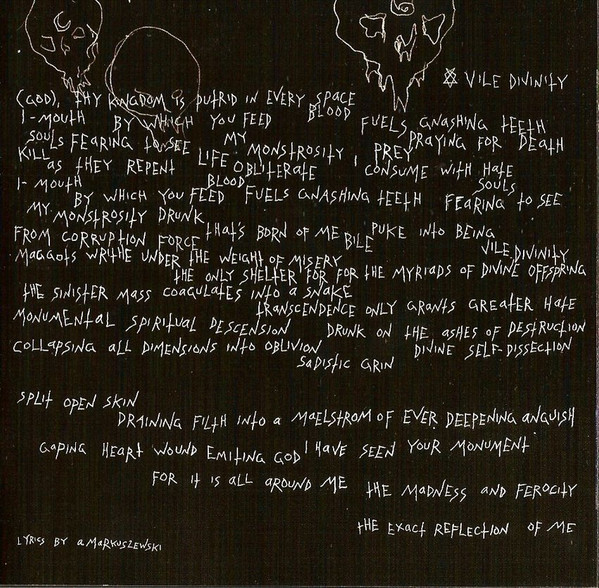 VILE DIVINITY
(GOD), THY KINGDOM IS PUTRID IN EVERY SPACE
I-MOUTH BY WHICH YOU FEED BLOOD FUELS GNASHING TEETH
SOULS FEARING TO SEE MY MONSTROSITY I PREY PRAYING FOR DEATH
KILL AS THEY REPENT LIFE OBLITERATE CONSUME WITH HATE
I-MOUTH BY WHICH YOU FEED BLOOD FUELS GNASHING TEETH SOULS FEARING TO SEE
MY MONSTROSITY DRUNK
FROM CORRUPTION FORCE THAT'S BORN OF ME BILE PUKE INTO BEING VILE DIVINITY
MAGGOTS WRITHE UNDER THE WEIGHT OF MISERY
THE ONLY SHELTER FOR FOR THE MYRIADS OF DIVINE OFFSPRING
THE SINISTER MASS COAGULATES INTO A SNAKE
TRANSCENDENCE ONLY GRANTS GREATER HATE
MONUMENTAL SPIRITUAL DESCENSION DRUNK ON THE ASHES OF DESTRUCTION
COLLAPSING ALL DIMENSIONS INTO OBLIVION DIVINE SELF-DISSECTION
SADISTIC GRIN
SPLIT OPEN SKIN
DRAINING FILTH INTO A MAELSTROM OF EVER DEEPENING ANGUISH
GAPING HEART WOUND EMITING GOD I HAVE SEEN YOUR MONUMENT
FOR IT IS ALL AROUND ME THE MADNESS AND FEROCITY
THE EXACT REFLECTION OF ME
LYRICS BY A MARKUSZEWSKI